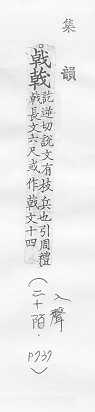 集韻
戟㦸訖逆切說文有枝兵也引周禮
㦸長丈六尺或作戟文十四
(入聲
二十陌.
P737)